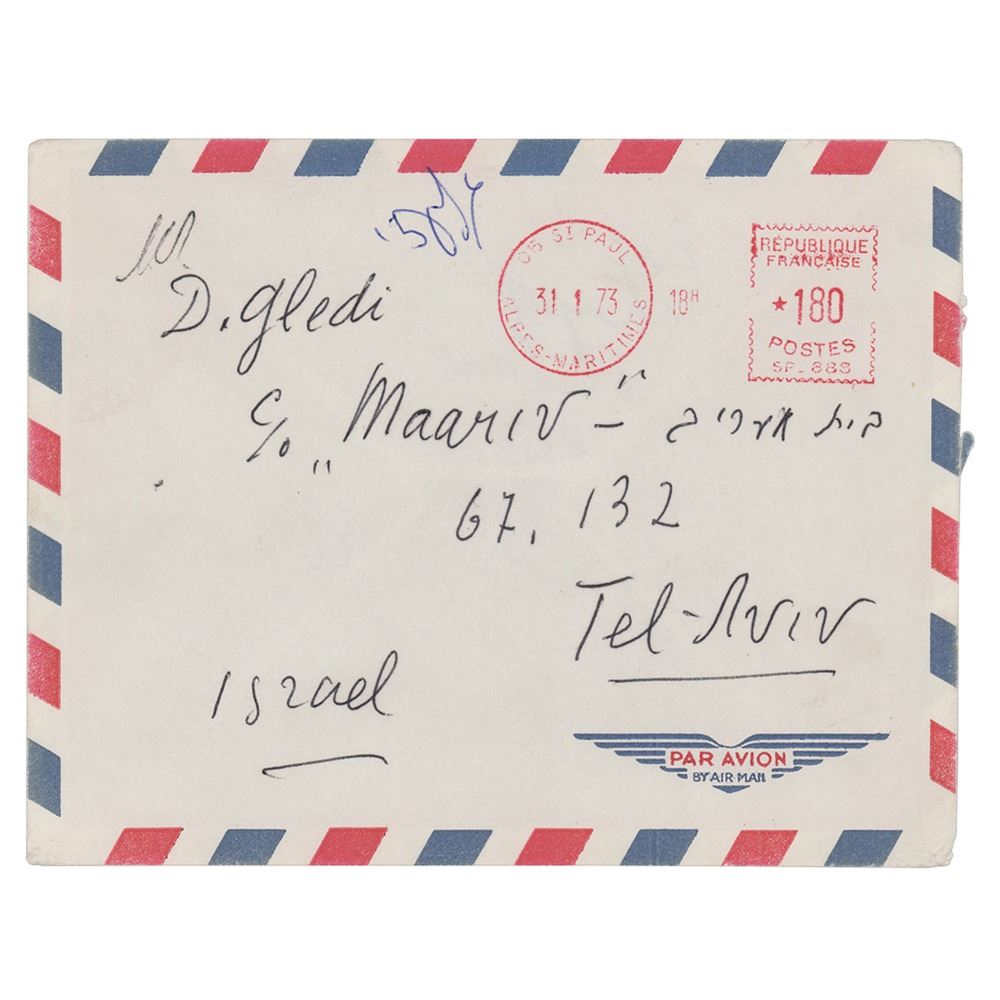 06 ST PAUL
31 1 73 18H
ALPES-MARITIMES
RÉPUBLIQUE
FRANÇAISE
*180
POSTES
SP. 883
D. Gledi
c/o "Maariv" - בית מעריב
67, 132
Tel-Aviv
Israel
PAR AVION
BY AIR MAIL